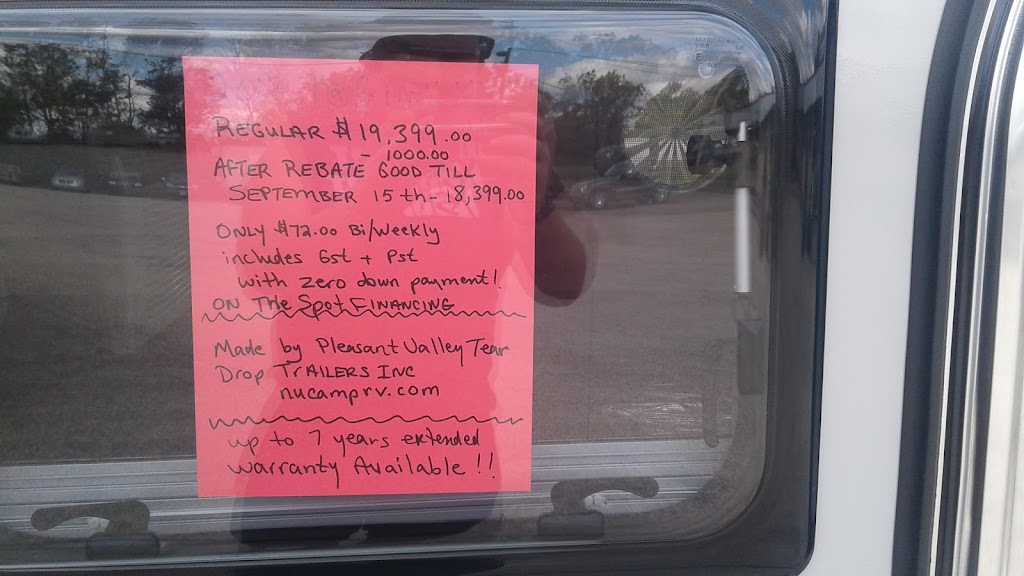 REGULAR $19,399.00
- 1000.00
AFTER REBATE GOOD TILL
SEPTEMBER 15th - 18,399.00
ONLY $72.00 Bi/Weekly
includes Gst + Pst
with zero down payment!
ON The Spot FINANCING
Made by Pleasant Valley Tear
Drop TRAILERS INC
nucamprv.com
up to 7 years extended
warranty Available!!